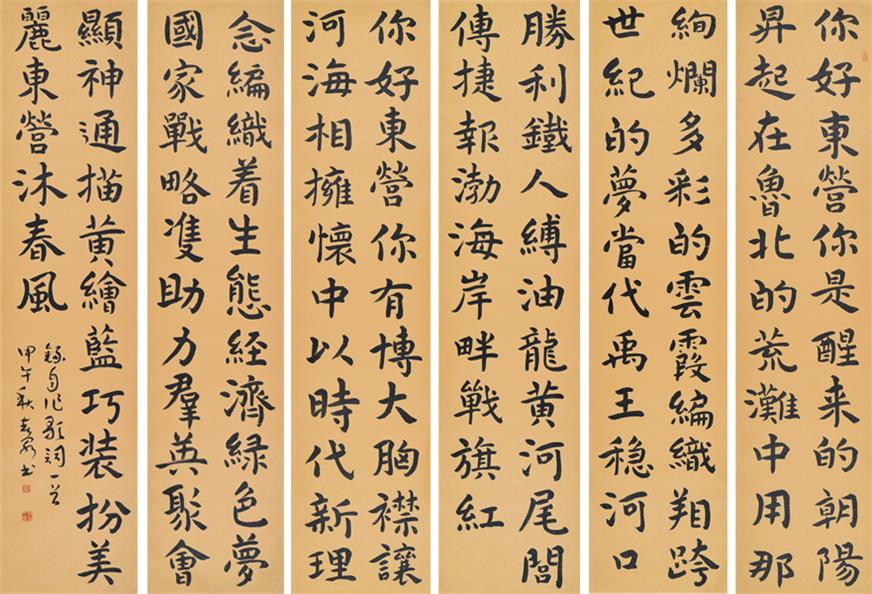 你好東營你是醒来的朝陽
昇起在魯北的荒灘中用那
絢爛多彩的雲霞編織翔跨
世紀的夢當代禹王穏河口
勝利鐵人縛油龍黄河尾閭
傳捷報渤海岸畔戰旗紅
你好東營你有博大胸襟讓
河海相擁懷中以時代新理
念編織着生態経濟緑色夢
國家戰略隻助力羣英聚會
顯神通描黄繪藍巧装扮美
麗東營沐春風
錄自作歌詞一首
甲午秋书